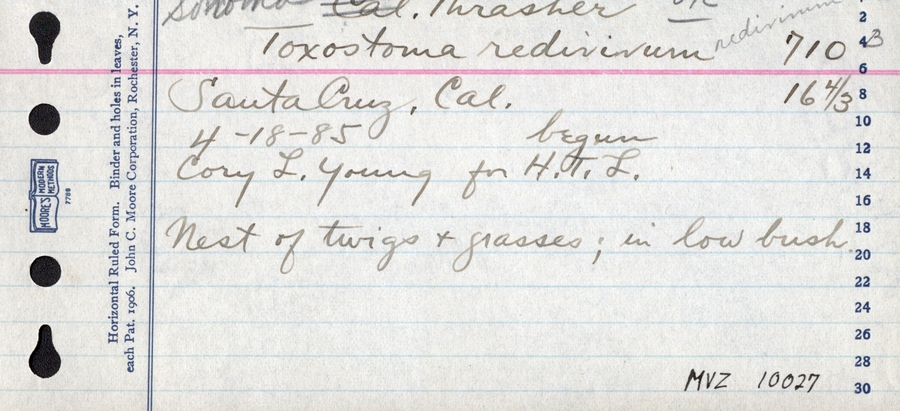 Sonoma Cal. Thrasher or
Toxostoma redivivum redivivum 710 3
Santa Cruz, Cal. 16 4/3
4-18-85 begun
Cory L. Young for H.T.L.
Nest of twigs + grasses; in low bush.
MVZ 10027
Horizontal Ruled Form. Binder and holes in leaves,
each Pat. 1906. John C. Moore Corporation, Rochester, N. Y.
MOORE'S MODERN METHODS
7788
2
4
6
8
10
12
14
16
18
20
22
24
26
28
30